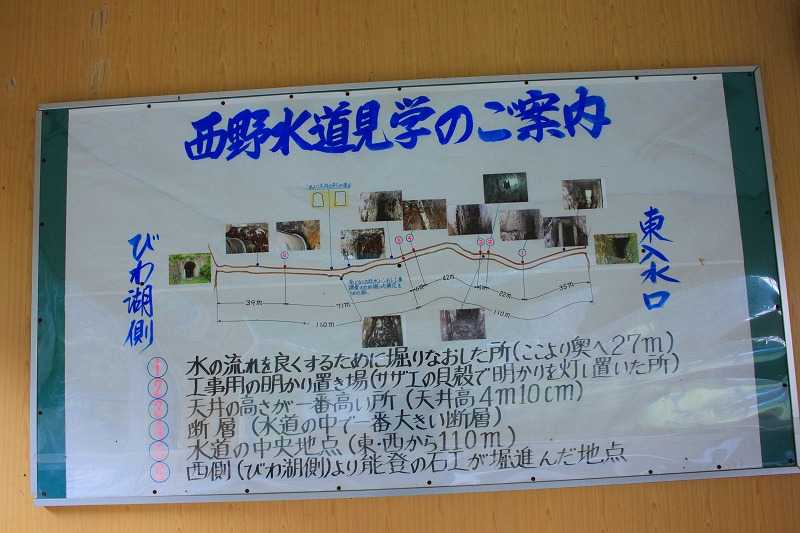 西野水道見学のご案内
びわ湖側
東入水口
39m
71m
42m
22m
35m
110m
110m
① 水の流れを良くするために堀りなおした所(ここより奥へ27m)
② 工事用の明かり置き場(サザエの貝殻で明かりを灯し置いた所)
③ 天井の高さが一番高い所(天井高4m10cm)
④ 断層(水道の中で一番大きい断層)
⑤ 水道の中央地点(東・西から110m)
⑥ 西側(びわ湖側)より能登の石工が堀進んだ地点